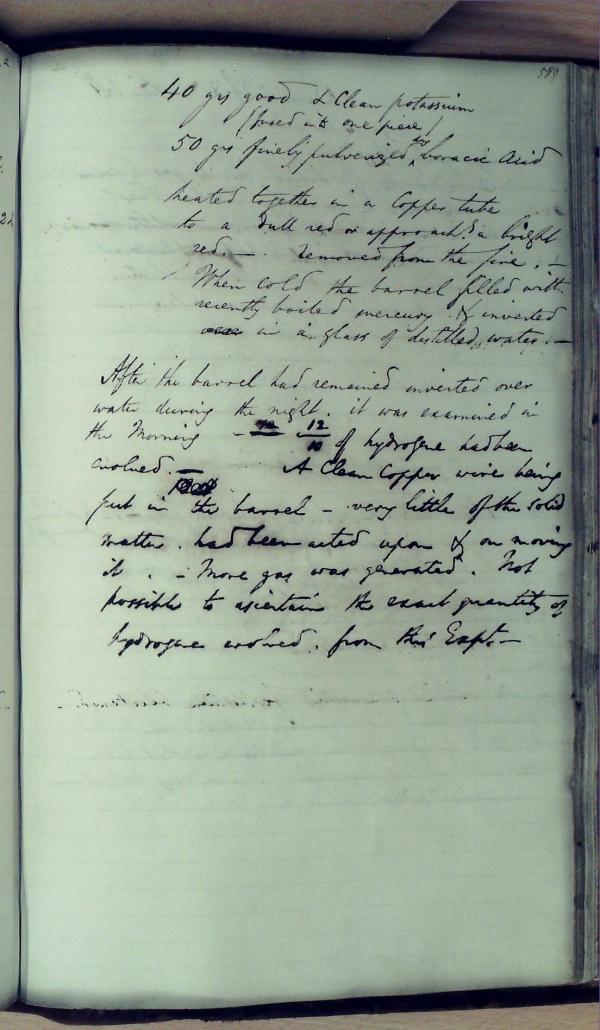 589
40 grs good & Clean potassium
(fused into one piece)
50 grs finely pulverized dry boracic Acid
heated together in a Copper tube
to a dull red or approachg a bright
red. — . removed from the fire . —
When cold the barrel filled with
recently boiled mercury & inverted
in a glass of distilled water. —
After the barrel had remained inverted over
water during the night . it was examined in
the Morning — 12/10 of hydrogene had been
evolved. — A Clean Copper wire being
put in the barrel – very little of the solid
matter . had been acted upon & on moving
it . – More gas was generated . Not
possible to ascertain the exact quantity of
hydrogene evolved . from this Expt. —